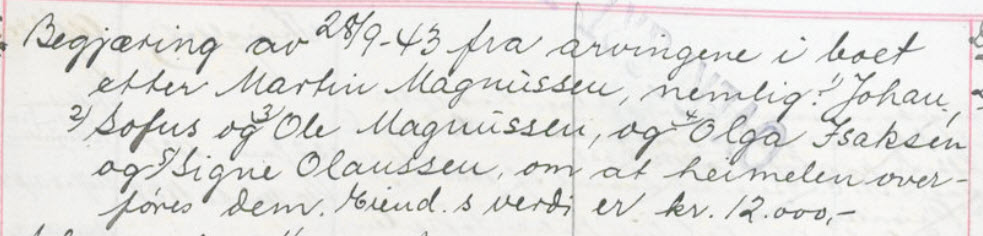 Begjæring av 28/9-43 fra arvingene i boet
etter Martin Magnussen, nemlig: 1) Johan,
2) Sofus og 3) Ole Magnussen, og 4) Olga Isaksen
og 5) Signe Olaussen, om at heimelen over-
føres dem. Eiend.s verdi er kr. 12.000,-